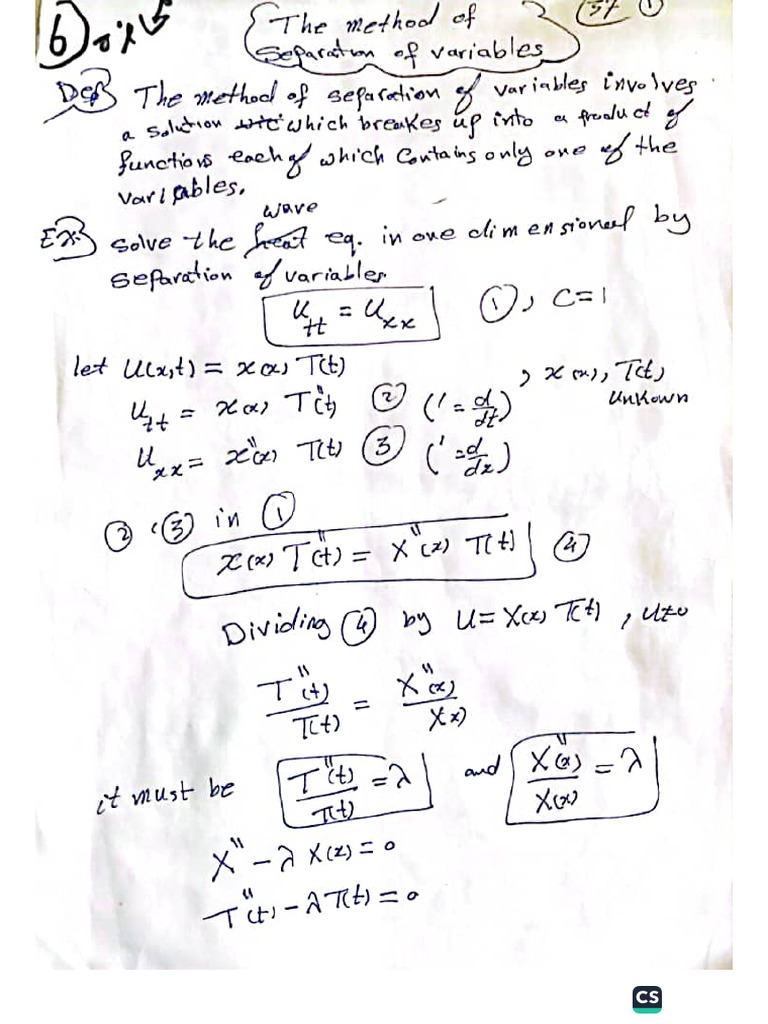 6
The method of
Separation of variables
37 1
Def The method of separation of variables involves
a solution which breakes up into a product of
functions each of which contains only one of the
variables.
wave
Ex. solve the heat eq. in one dimensioneel by
separation of variables
U_tt = U_xx ①, C=1
let U(x,t) = X(x) T(t)
, X(x), T(t),
U_tt = X(x) T''(t) ② (' = d/dt)
unkown
U_xx = X''(x) T(t) ③ (' = d/dx)
②, ③ in ①
X(x) T''(t) = X''(x) T(t) ④
Dividing ④ by U = X(x) T(t), U≠0
T''(t)/T(t) = X''(x)/X(x)
it must be T''(t)/T(t) = λ and X''(x)/X(x) = λ
X'' - λ X(x) = 0
T''(t) - λ T(t) = 0
CS